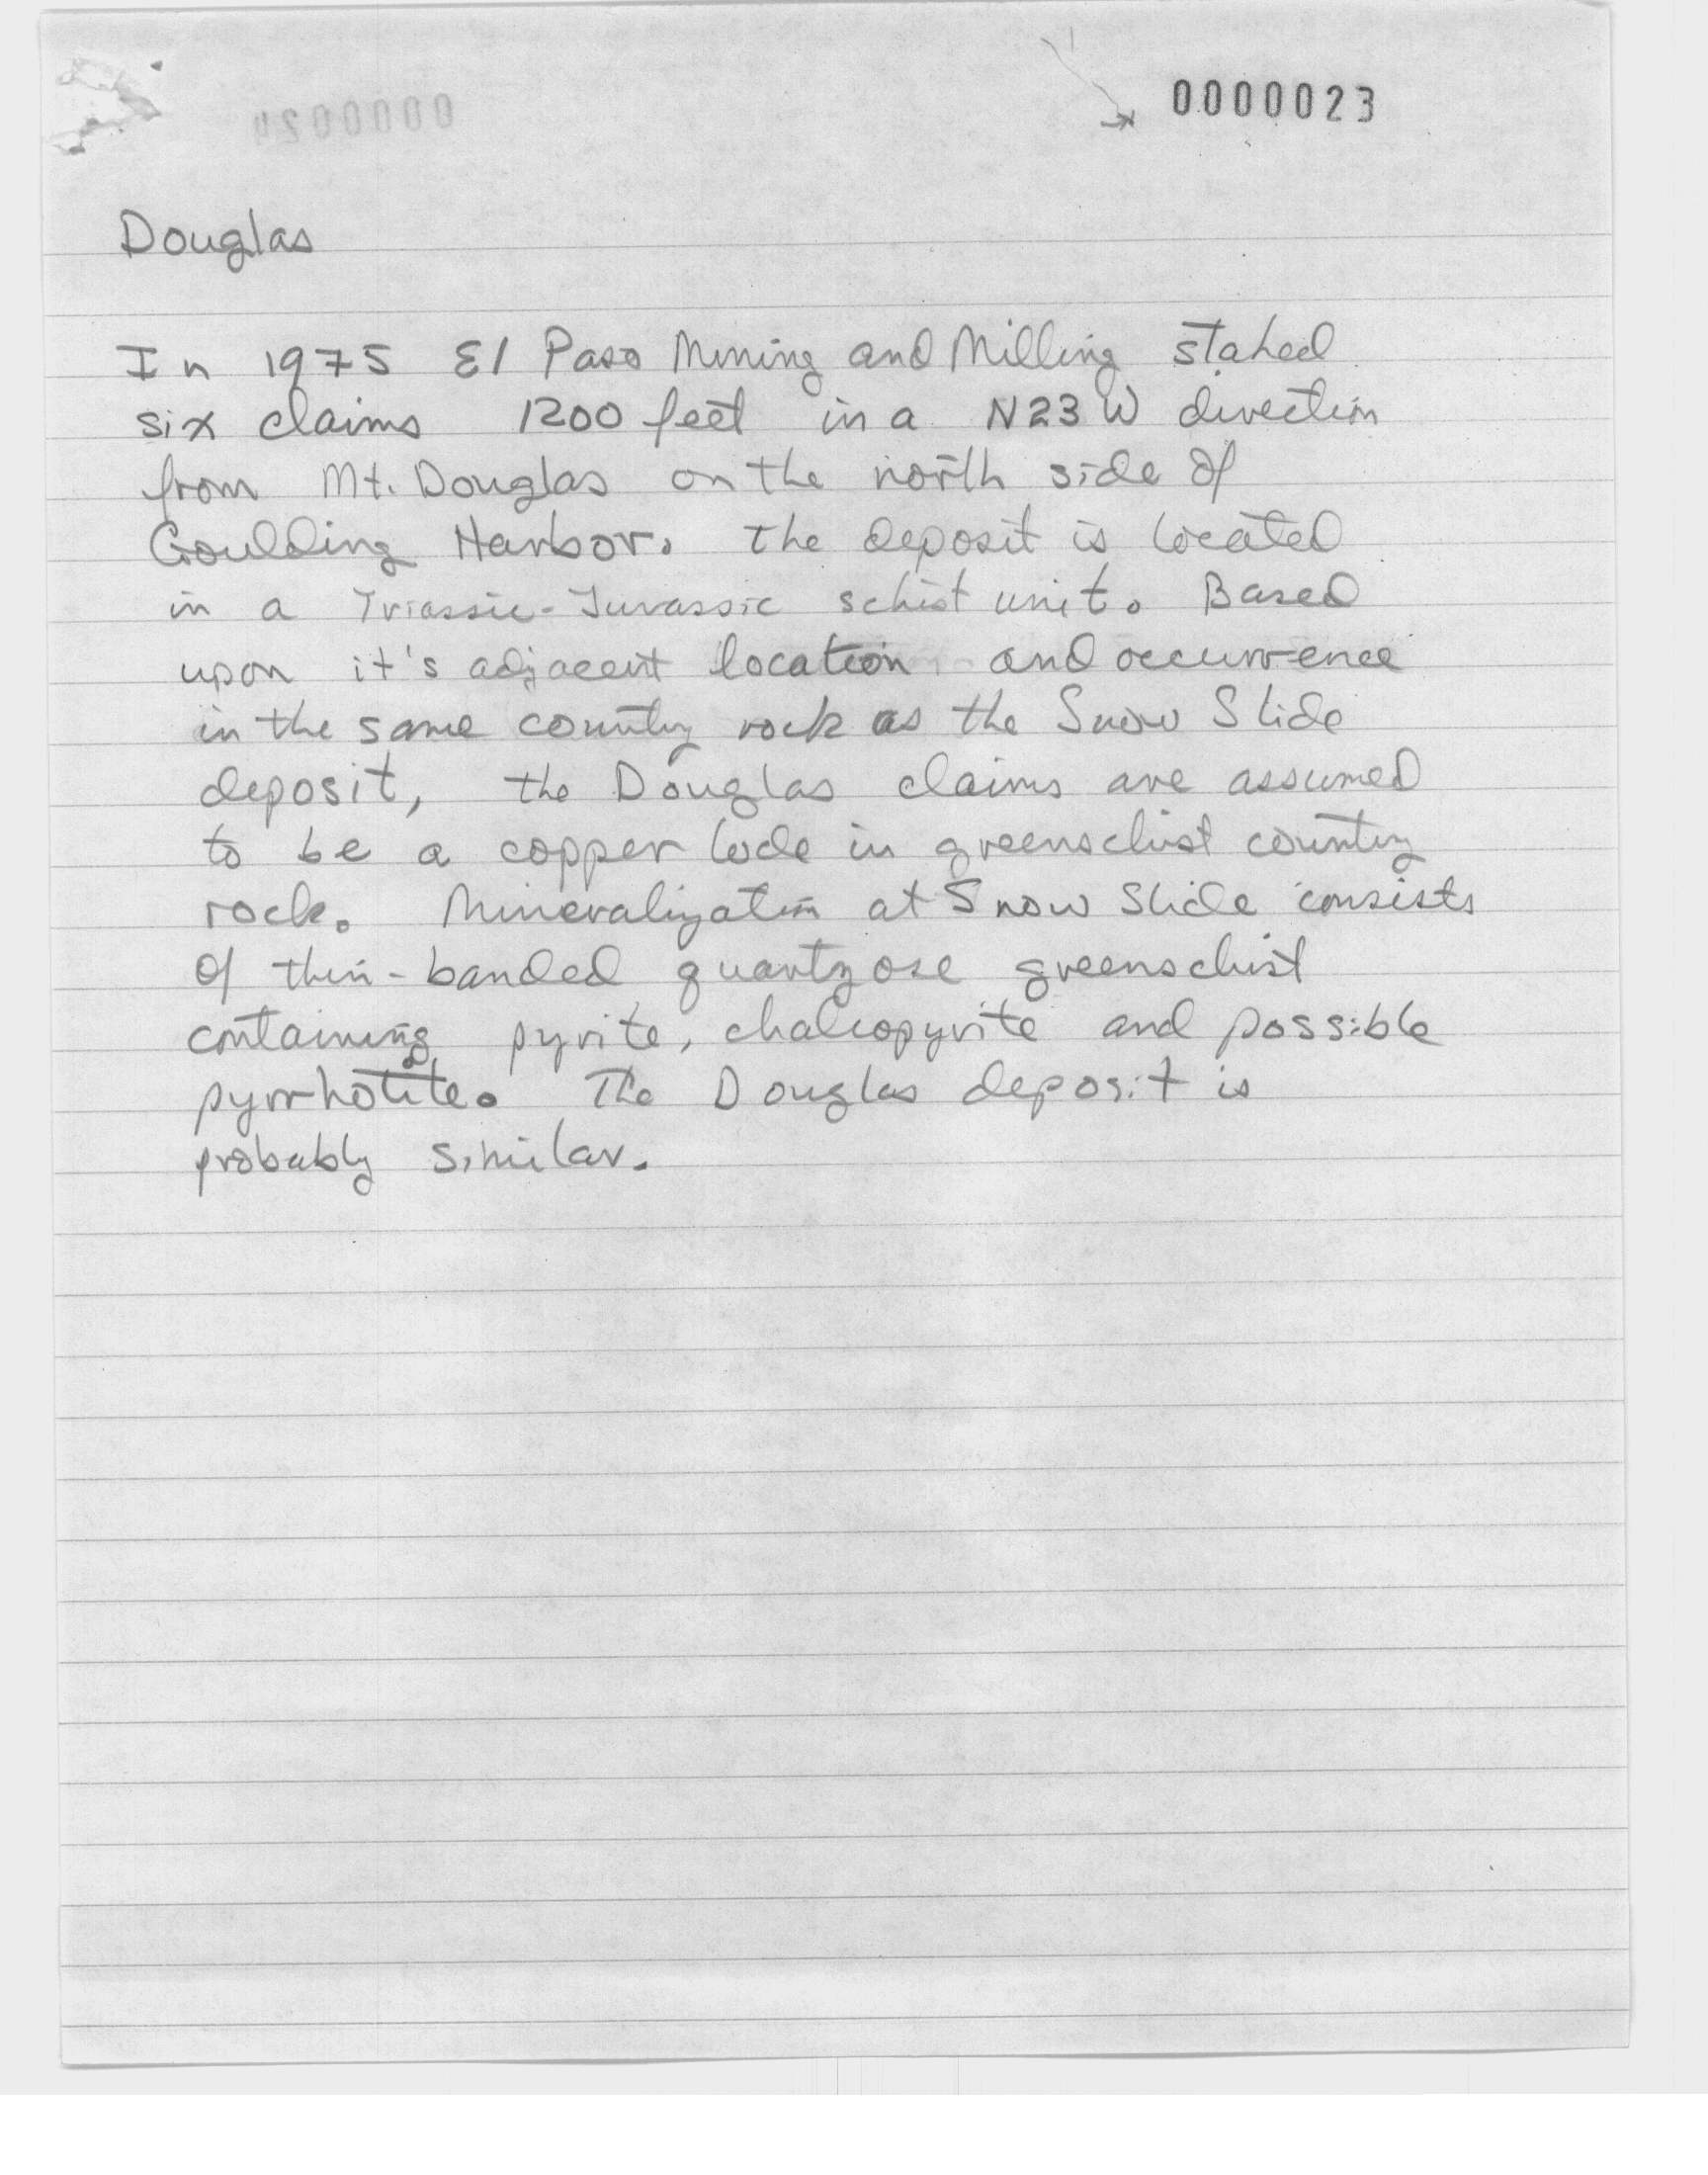 0000023
Douglas
In 1975 El Paso Mining and Milling staked
six claims 1200 feet in a N23W direction
from Mt. Douglas on the north side of
Goulding Harbor. The deposit is located
in a Triassic-Jurassic schist unit. Based
upon it's adjacent location and occurrence
in the same country rock as the Snow Slide
deposit, the Douglas claims are assumed
to be a copper lode in greenschist country
rock. Mineralization at Snow Slide consists
of thin-banded quartzose greenschist
containing pyrite, chalcopyrite and possible
pyrrhotite. The Douglas deposit is
probably similar.